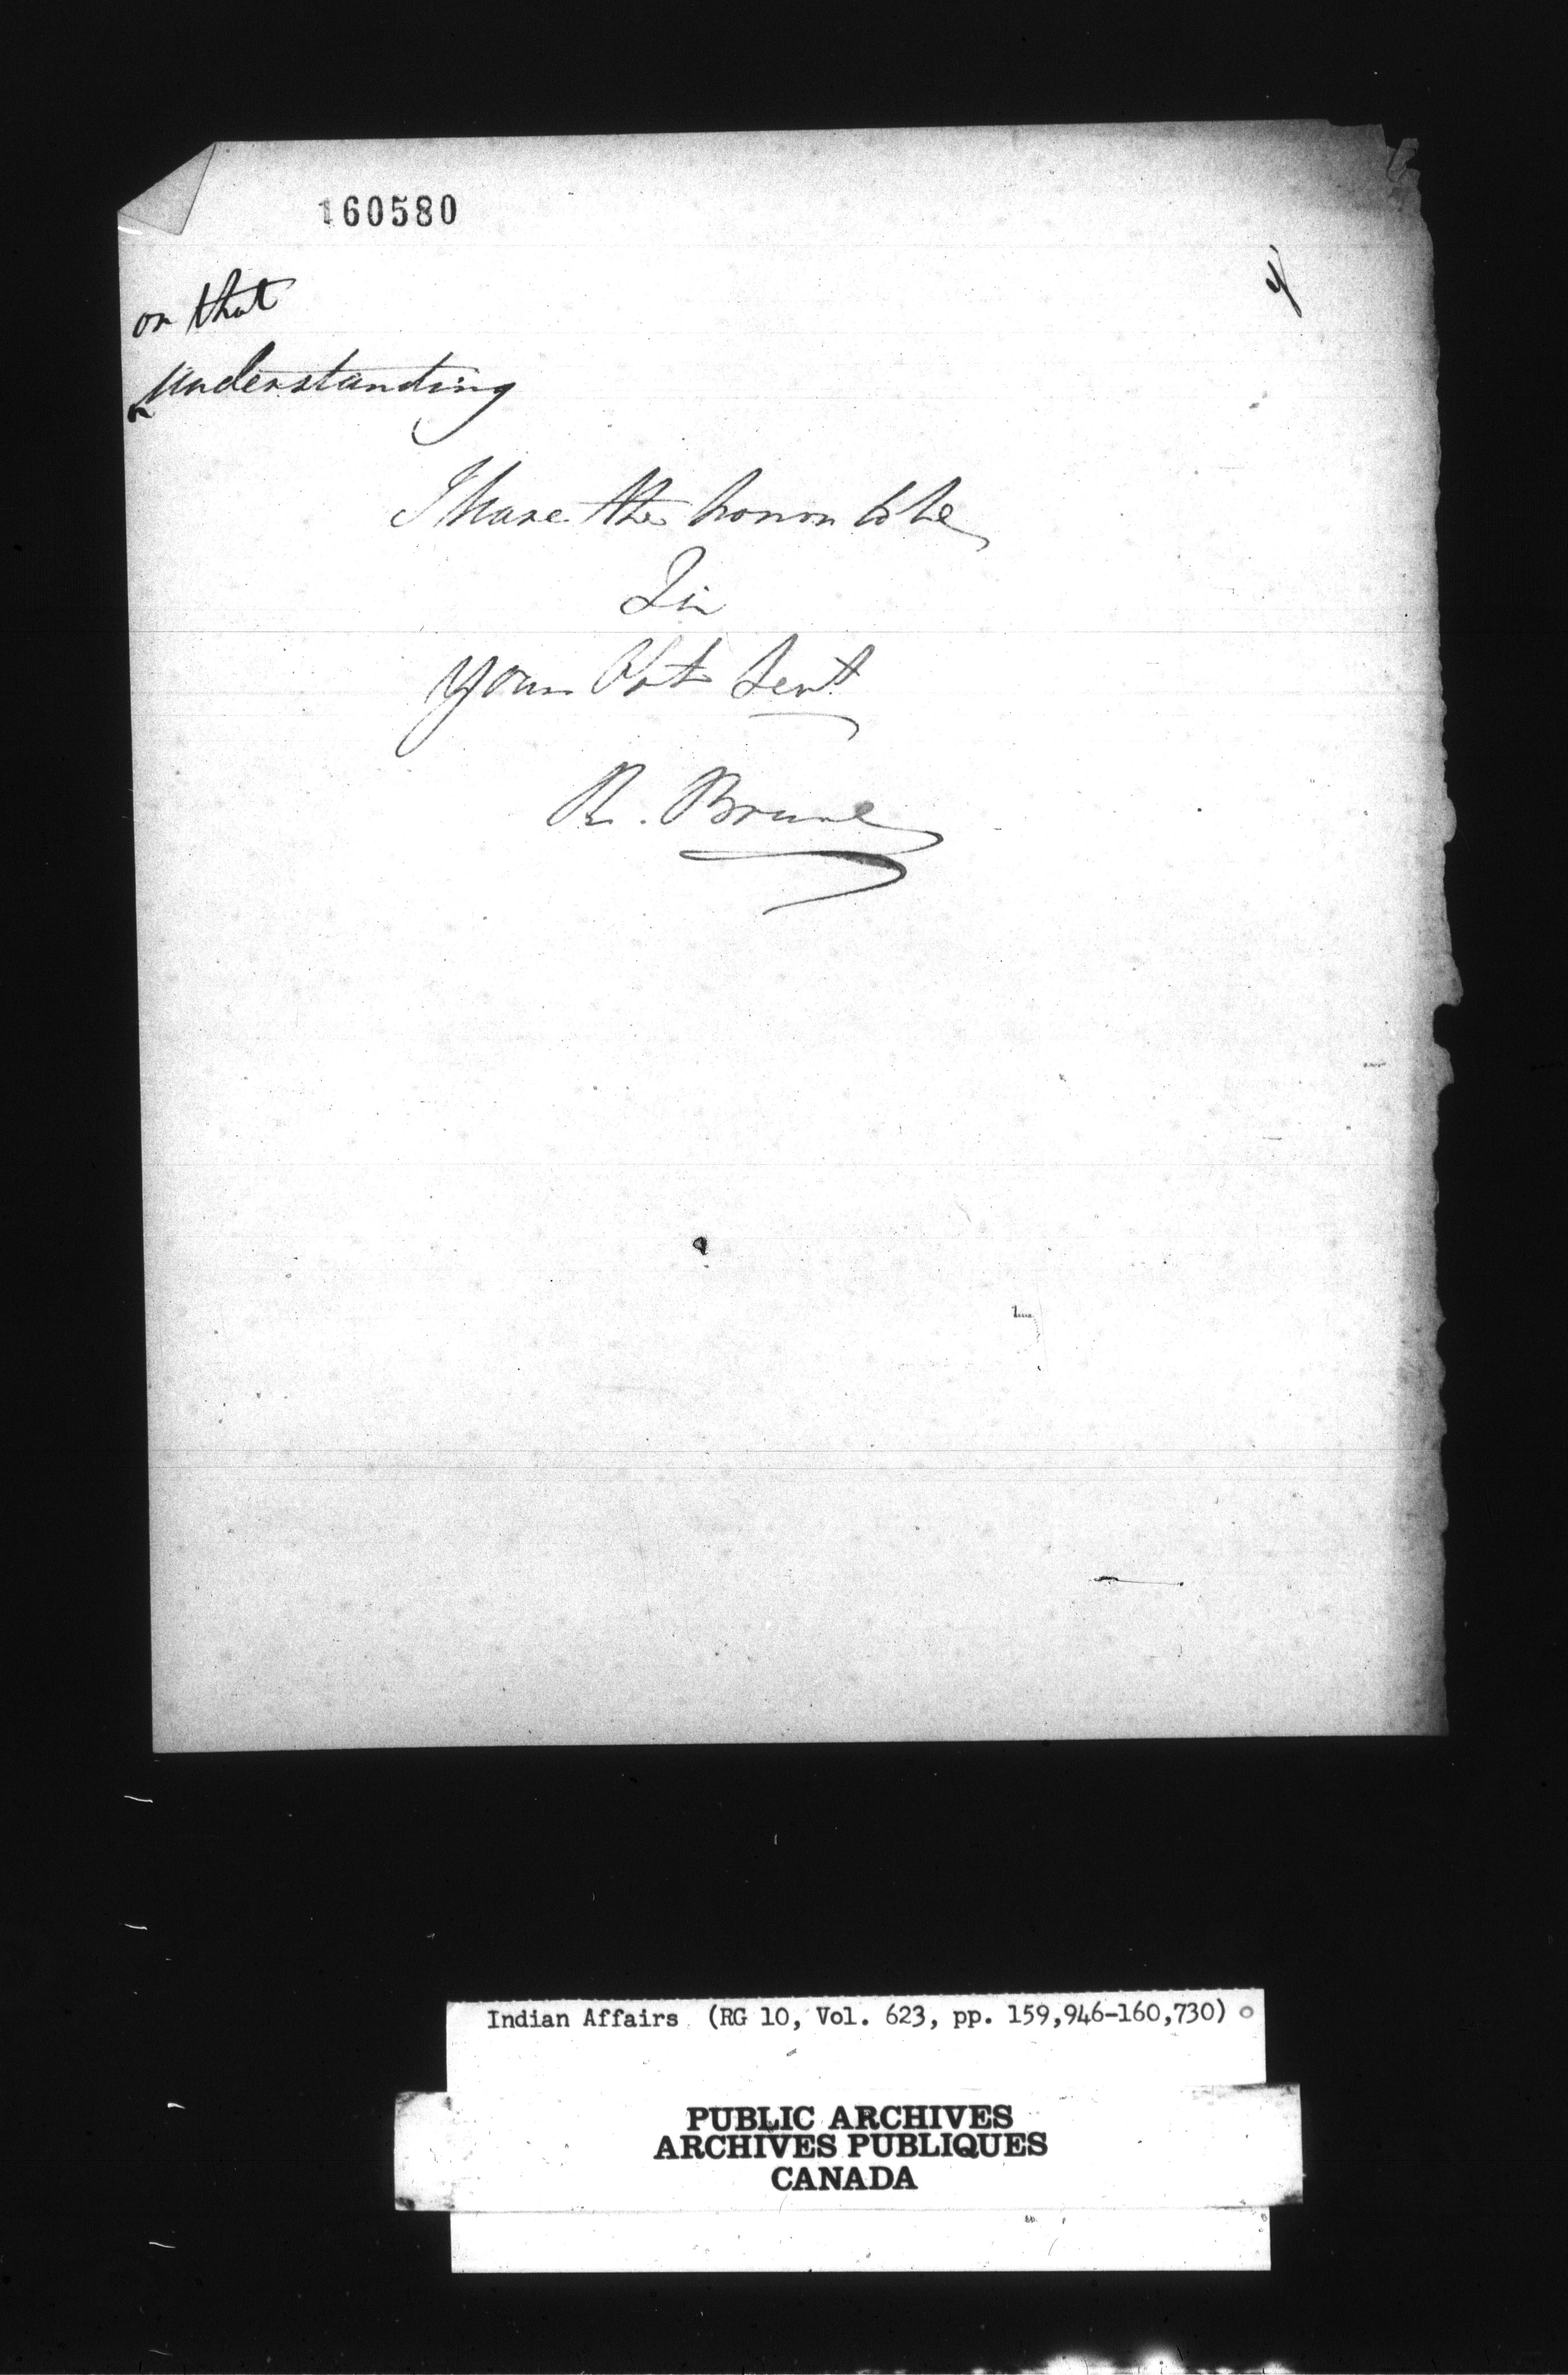 160580
4
on that
understanding
I have the honor to be
Sir
Your Obt Servt
R. Bruce
Indian Affairs (RG 10, Vol. 623, pp. 159,946-160,730)
PUBLIC ARCHIVES
ARCHIVES PUBLIQUES
CANADA